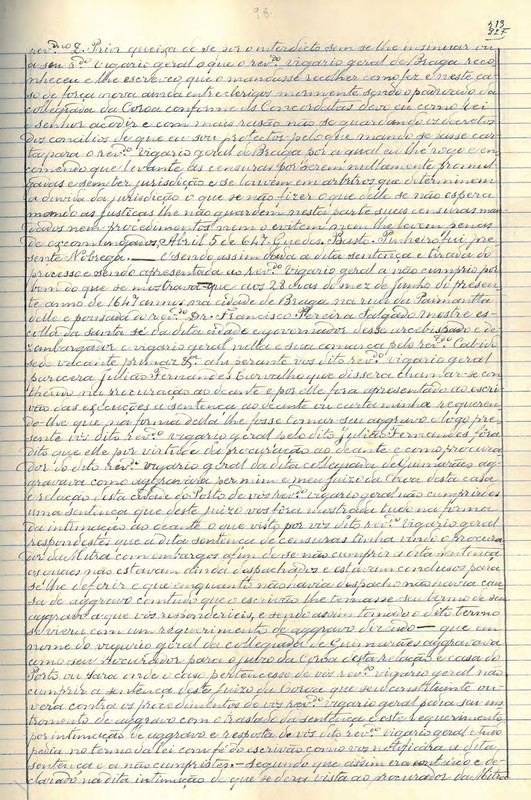 98
rev.mo D. Prior queixa de se pôr o interdicto sem se lhe insinuar ou
a seu r.do vigario geral o que o rev.do vigario geral de Braga reco-
nheceu e lhe escreveu, que o mandasse recolher como fez e neste ca-
so de força nova ainda entre clerigos mormente sendo o padroado da
collegiada da Corôa conforme as Concordatas devo eu como Rei
e senhor acodir e com mais rasão não se guardando os decretos
dos concilios de que eu sou protector pelo que mando se passe car-
ta para o rev.do vigario geral de Braga por a qual eu lhe rogo e en-
commendo que levante as censuras por serem nullamente promul-
gadas e sem ter jurisdicção e se louvem em arbitros que determinem
a duvida da jurisdicção o que se não fizer o que delle se não espera
mando as justiças lhe não guardem nesta parte suas censuras man-
dados nem procedimentos nem o evitem nem lhe levem penas
de excommungados. Abril 5 de 647. Guedes. Basto. Pinheiro. Fui pre-
sente Nobrega. — E sendo assim dada a dita sentença e tirada do
processo e sendo apresentada ao rev.do vigario geral a não cumpriu por
bem do que se mostrava que aos 28 dias do mez de Junho do presen-
te anno de 1647 annos na cidade de Braga na rua de
delle e pousada do rev.do Dr. Francisco Pereira Salgado mestre es-
colla da santa sé da dita cidade e governador desse arcebispado e de-
zembargador e vigario geral nella e sua comarca pelo rev.mo Cabido
sede vacante primaz &.a ahi perante vós dito rev.do vigario geral
parecera Julião Fernandes Carvalho que dissera chamar-se con-
theudo na procuração ao deante e por elle fôra apresentado ao escri-
vão das execuções a sentença ao deante ou carta minha requeren-
do-lhe que na forma della lhe fosse tomar seu aggravo e logo pre-
sente vós dito rev.do vigario geral pelo dito Julião Fernandes fôra
dito que elle por virtude da procuração ao deante e como procura-
dor do dito rev.do vigario geral da dita collegiada de Guimarães ag-
gravava como aggravara per mim e meu juizo da Corôa desta casa
e relação desta cidade do Porto de vós rev.do vigario geral não cumprirdes
uma sentença que deste juizo vos fôra mostrada tudo na forma
da intimação ao deante o que visto por vós dito rev.do vigario geral
respondestes que a dita sentença de censuras tinha vindo o procura-
dor da Mitra com embargos afim de se não cumprir a dita sentença
os quaes não estavam ainda despachados e estavam conclusos para
se lhe deferir e que enquanto não havia despacho não havia cau-
sa de aggravo comtudo que o escrivão lhe tomasse seu termo de seu
aggravo a que vós responderieis, e sendo assim tomado o dito termo
se viera com um requerimento de aggravo dizendo — que em
nome do vigario geral da collegiada de Guimarães aggravava
como seu procurador para o juizo da Corôa desta relação e casa do
Porto ou para onde o caso pertencesse de vós rev.do vigario geral não
cumprir a sentença deste juizo da Corôa que seu constituinte ou-
vera contra os procedimentos de vós rev.do vigario geral pedia seu ins-
tromento de aggravo com o traslado da sentença e este requerimento
por intimação de aggravo e resposta de vós dito rev.do vigario geral e tudo
pedia no termo da lei com fé do escrivão como vos notificára a dita
sentença e a não cumpristes. — segundo que assim era contheudo e de-
clarado na dita intimação de que se dera vista ao procurador da Mitra